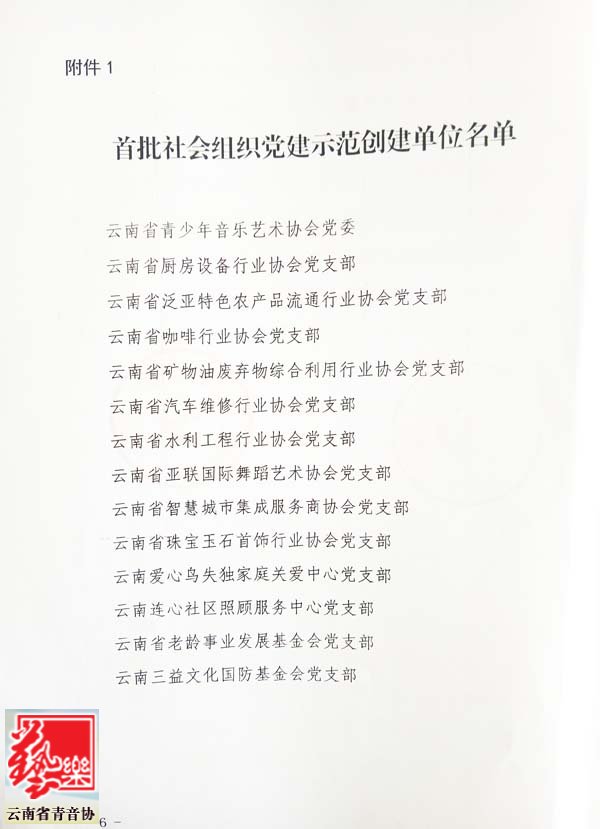 附件 1
首批社会组织党建示范创建单位名单
云南省青少年音乐艺术协会党委
云南省厨房设备行业协会党支部
云南省泛亚特色农产品流通行业协会党支部
云南省咖啡行业协会党支部
云南省矿物油废弃物综合利用行业协会党支部
云南省汽车维修行业协会党支部
云南省水利工程行业协会党支部
云南省亚联国际舞蹈艺术协会党支部
云南省智慧城市集成服务商协会党支部
云南省珠宝玉石首饰行业协会党支部
云南爱心鸟失独家庭关爱中心党支部
云南连心社区照顾服务中心党支部
云南省老龄事业发展基金会党支部
云南三益文化国防基金会党支部
藝樂
云南省青音协
6 -